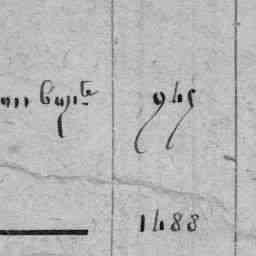 an Bapte 945
1488